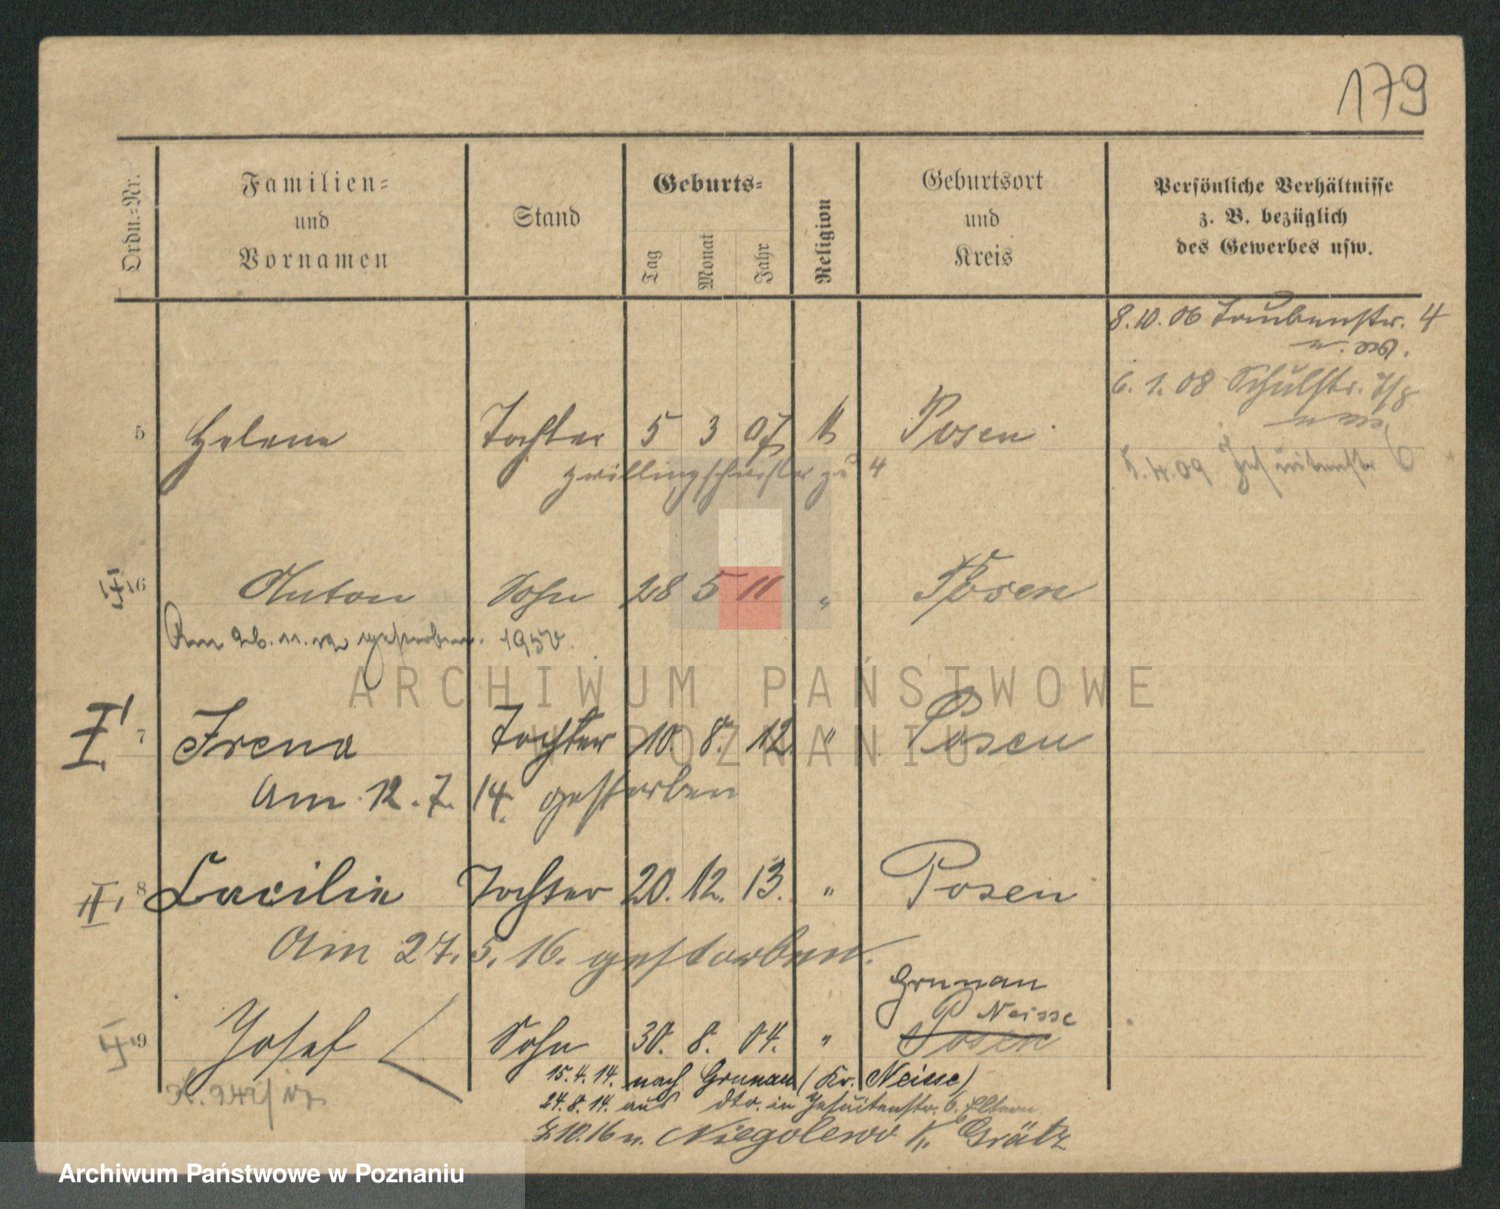 179
Ordn.=Nr.
Familien=
und
Vornamen
Stand
Geburts=
Tag
Monat
Jahr
Religion
Geburtsort
und
Kreis
Persönliche Verhältnisse
z. B. bezüglich
des Gewerbes usw.
8.10.06 Taubenstr. 4
6. 1. 08 Schulstr. 7/8
8.4.09 Jesuitenstr 6
5 Helene Tochter 5 3 07 k Posen
Zwillingschwester zu 4
6 Anton Sohn 28 5 11 " Posen
Am 26. 11. 12 gestorben. 1950.
I 7 Irena Tochter 10. 8. 12 " Posen
Am 12. 7. 14. gestorben
II, 8 Cacilie Tochter 20. 12. 13. " Posen
Am 27. 5. 16. gestorben.
Grunau
Neisse
9 Josef Sohn 30. 8. 04. " Posen
15.4.14. nach Grunau (Kr. Neisse)
24.8.14. aus dto. in Jesuitenstr. 6. Eltern
10.16 n. Niegolewo K. Grätz
ARCHIWUM PAŃSTWOWE
W POZNANIU
Archiwum Państwowe w Poznaniu